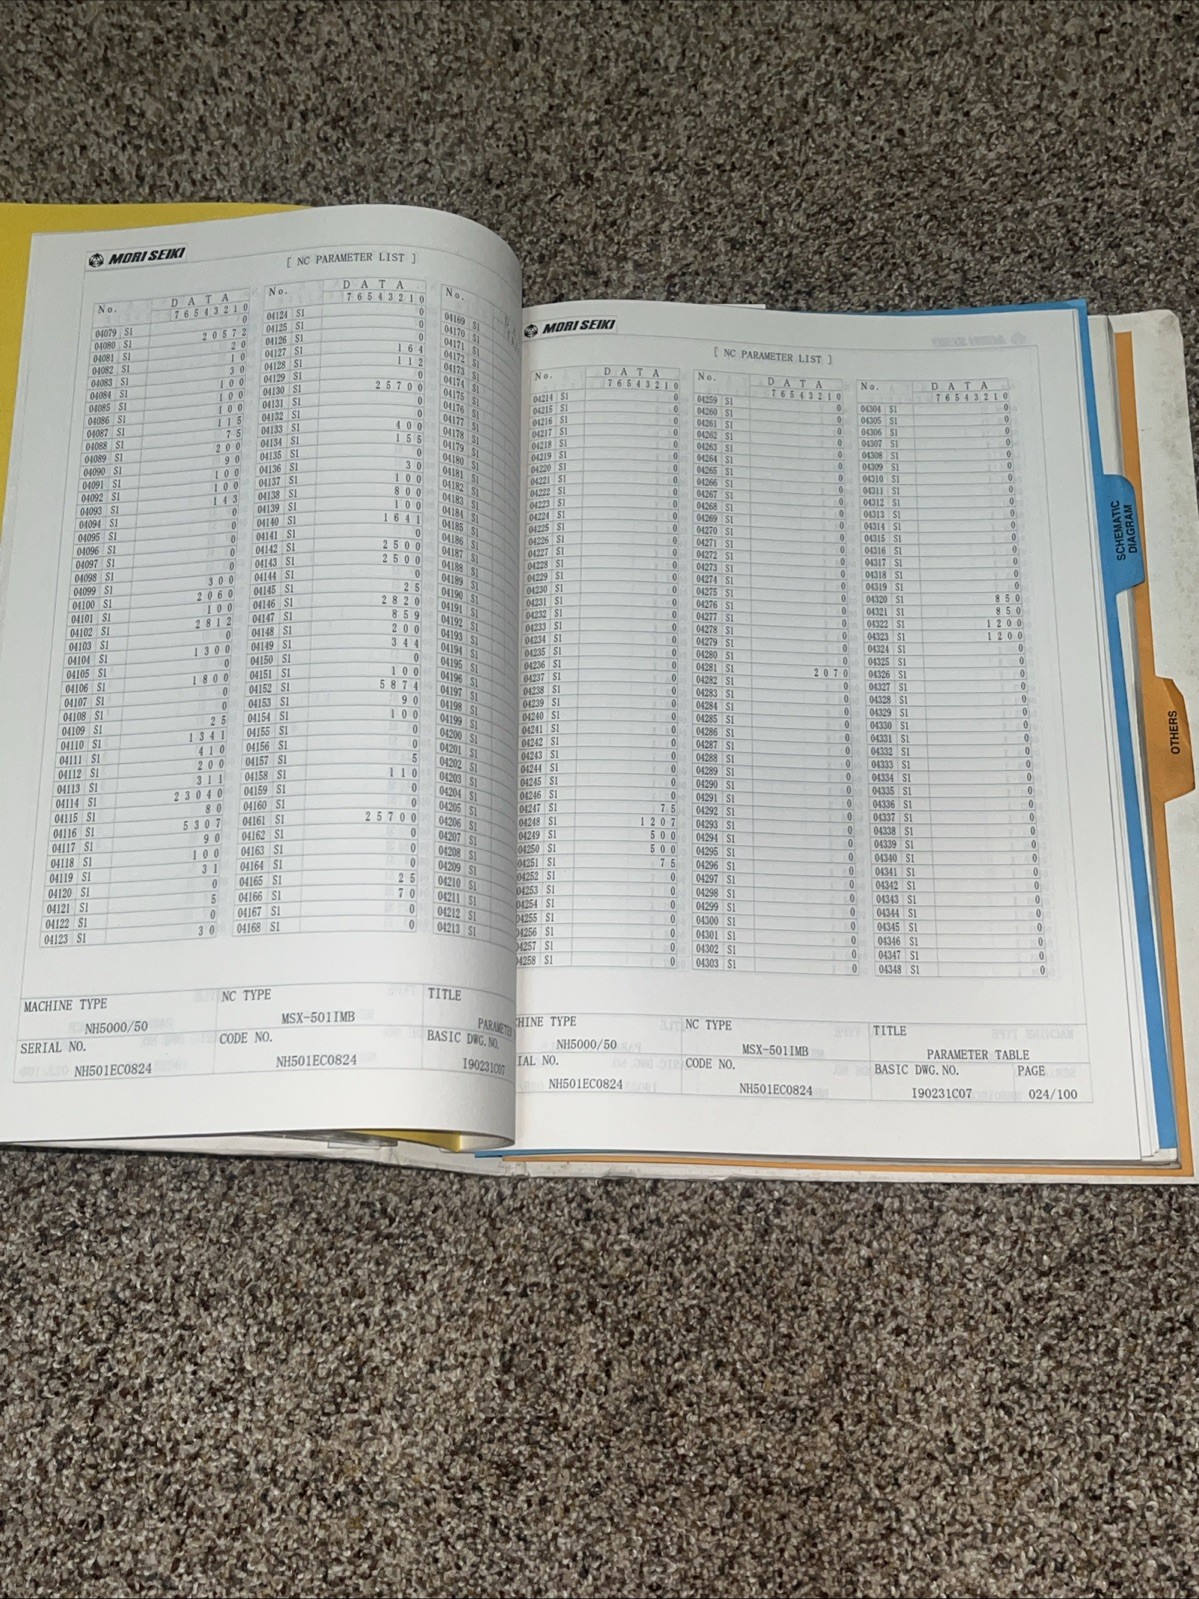 MORI SEIKI
[ NC PARAMETER LIST ]
No. D A T A
7 6 5 4 3 2 1 0
04079 S1 0
04080 S1 20572
04081 S1 20
04082 S1 10
04083 S1 30
04084 S1 100
04085 S1 100
04086 S1 100
04087 S1 115
04088 S1 75
04089 S1 200
04090 S1 90
04091 S1 100
04092 S1 100
04093 S1 143
04094 S1 0
04095 S1 0
04096 S1 0
04097 S1 0
04098 S1 0
04099 S1 300
04100 S1 2060
04101 S1 100
04102 S1 2812
04103 S1 0
04104 S1 1300
04105 S1 0
04106 S1 1800
04107 S1 0
04108 S1 0
04109 S1 25
04110 S1 1341
04111 S1 410
04112 S1 200
04113 S1 311
04114 S1 23040
04115 S1 80
04116 S1 5307
04117 S1 90
04118 S1 100
04119 S1 31
04120 S1 0
04121 S1 5
04122 S1 0
04123 S1 30
No. D A T A
7 6 5 4 3 2 1 0
04124 S1 0
04125 S1 0
04126 S1 0
04127 S1 164
04128 S1 112
04129 S1 0
04130 S1 25700
04131 S1 0
04132 S1 0
04133 S1 400
04134 S1 155
04135 S1 0
04136 S1 30
04137 S1 100
04138 S1 800
04139 S1 100
04140 S1 1641
04141 S1 0
04142 S1 2500
04143 S1 2500
04144 S1 0
04145 S1 25
04146 S1 2820
04147 S1 859
04148 S1 200
04149 S1 344
04150 S1 0
04151 S1 100
04152 S1 5874
04153 S1 90
04154 S1 100
04155 S1 0
04156 S1 0
04157 S1 5
04158 S1 110
04159 S1 0
04160 S1 0
04161 S1 25700
04162 S1 0
04163 S1 0
04164 S1 0
04165 S1 25
04166 S1 70
04167 S1 0
04168 S1 0
No.
04169 S1
04170 S1
04171 S1
04172 S1
04173 S1
04174 S1
04175 S1
04176 S1
04177 S1
04178 S1
04179 S1
04180 S1
04181 S1
04182 S1
04183 S1
04184 S1
04185 S1
04186 S1
04187 S1
04188 S1
04189 S1
04190 S1
04191 S1
04192 S1
04193 S1
04194 S1
04195 S1
04196 S1
04197 S1
04198 S1
04199 S1
04200 S1
04201 S1
04202 S1
04203 S1
04204 S1
04205 S1
04206 S1
04207 S1
04208 S1
04209 S1
04210 S1
04211 S1
04212 S1
04213 S1
MACHINE TYPE NC TYPE TITLE
NH5000/50 MSX-501IMB PARAMETER
SERIAL NO. CODE NO. BASIC DWG.NO.
NH501EC0824 NH501EC0824 I90231C07
MORI SEIKI
[ NC PARAMETER LIST ]
No. D A T A
7 6 5 4 3 2 1 0
04214 S1 0
04215 S1 0
04216 S1 0
04217 S1 0
04218 S1 0
04219 S1 0
04220 S1 0
04221 S1 0
04222 S1 0
04223 S1 0
04224 S1 0
04225 S1 0
04226 S1 0
04227 S1 0
04228 S1 0
04229 S1 0
04230 S1 0
04231 S1 0
04232 S1 0
04233 S1 0
04234 S1 0
04235 S1 0
04236 S1 0
04237 S1 0
04238 S1 0
04239 S1 0
04240 S1 0
04241 S1 0
04242 S1 0
04243 S1 0
04244 S1 0
04245 S1 0
04246 S1 0
04247 S1 75
04248 S1 1207
04249 S1 500
04250 S1 500
04251 S1 75
04252 S1 0
04253 S1 0
04254 S1 0
04255 S1 0
04256 S1 0
04257 S1 0
04258 S1 0
No. D A T A
7 6 5 4 3 2 1 0
04259 S1 0
04260 S1 0
04261 S1 0
04262 S1 0
04263 S1 0
04264 S1 0
04265 S1 0
04266 S1 0
04267 S1 0
04268 S1 0
04269 S1 0
04270 S1 0
04271 S1 0
04272 S1 0
04273 S1 0
04274 S1 0
04275 S1 0
04276 S1 0
04277 S1 0
04278 S1 0
04279 S1 0
04280 S1 0
04281 S1 2070
04282 S1 0
04283 S1 0
04284 S1 0
04285 S1 0
04286 S1 0
04287 S1 0
04288 S1 0
04289 S1 0
04290 S1 0
04291 S1 0
04292 S1 0
04293 S1 0
04294 S1 0
04295 S1 0
04296 S1 0
04297 S1 0
04298 S1 0
04299 S1 0
04300 S1 0
04301 S1 0
04302 S1 0
04303 S1 0
No. D A T A
7 6 5 4 3 2 1 0
04304 S1 0
04305 S1 0
04306 S1 0
04307 S1 0
04308 S1 0
04309 S1 0
04310 S1 0
04311 S1 0
04312 S1 0
04313 S1 0
04314 S1 0
04315 S1 0
04316 S1 0
04317 S1 0
04318 S1 0
04319 S1 0
04320 S1 850
04321 S1 850
04322 S1 1200
04323 S1 1200
04324 S1 0
04325 S1 0
04326 S1 0
04327 S1 0
04328 S1 0
04329 S1 0
04330 S1 0
04331 S1 0
04332 S1 0
04333 S1 0
04334 S1 0
04335 S1 0
04336 S1 0
04337 S1 0
04338 S1 0
04339 S1 0
04340 S1 0
04341 S1 0
04342 S1 0
04343 S1 0
04344 S1 0
04345 S1 0
04346 S1 0
04347 S1 0
04348 S1 0
HINE TYPE NC TYPE TITLE
NH5000/50 MSX-501IMB PARAMETER TABLE
IAL NO. CODE NO. BASIC DWG.NO. PAGE
NH501EC0824 NH501EC0824 I90231C07 024/100
SCHEMATIC
DIAGRAM
OTHERS